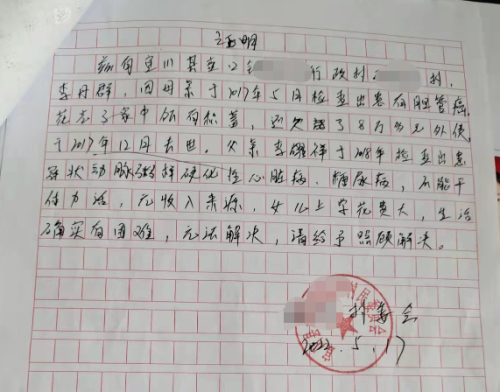 证明
兹有宜川县 行政村 村,
李丹群,因母亲于2017年5月检查出患有胆管癌,
花去了家中所有积蓄,还欠债了8万多元外债
于2017年12月去世。父亲李 祥于2018年检查出患
冠状动脉粥样硬化性心脏病、糖尿病,不能干
体力活,无收入来源,女儿上学花费大,生活
确实有困难,无法解决,请给予照顾解决。
村委会
2022.5.17